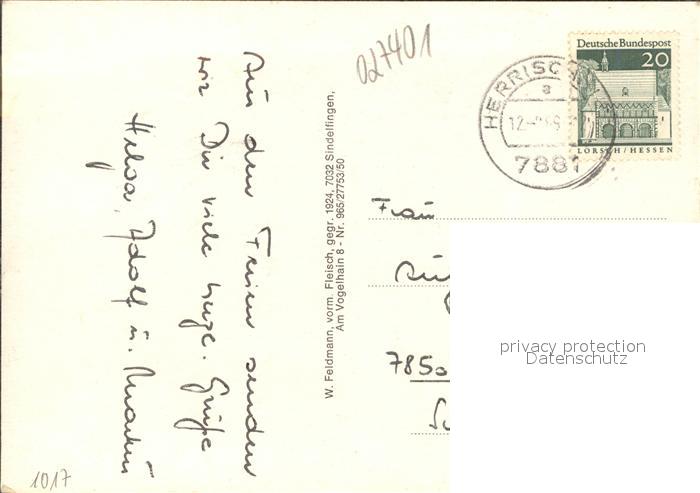 027401
Deutsche Bundespost
20
LORSCH/HESSEN
HERRISCH
a
12.
7881
Aus den Ferien senden
wir Dir viele herzl. Grüße
Helga, Adolf u. Markus
W. Feldmann, vorm. Fleisch, gegr. 1924, 7032 Sindelfingen,
Am Vogelhain 8 - Nr. 965/27753/50
Frau
7850
privacy protection
Datenschutz
1017